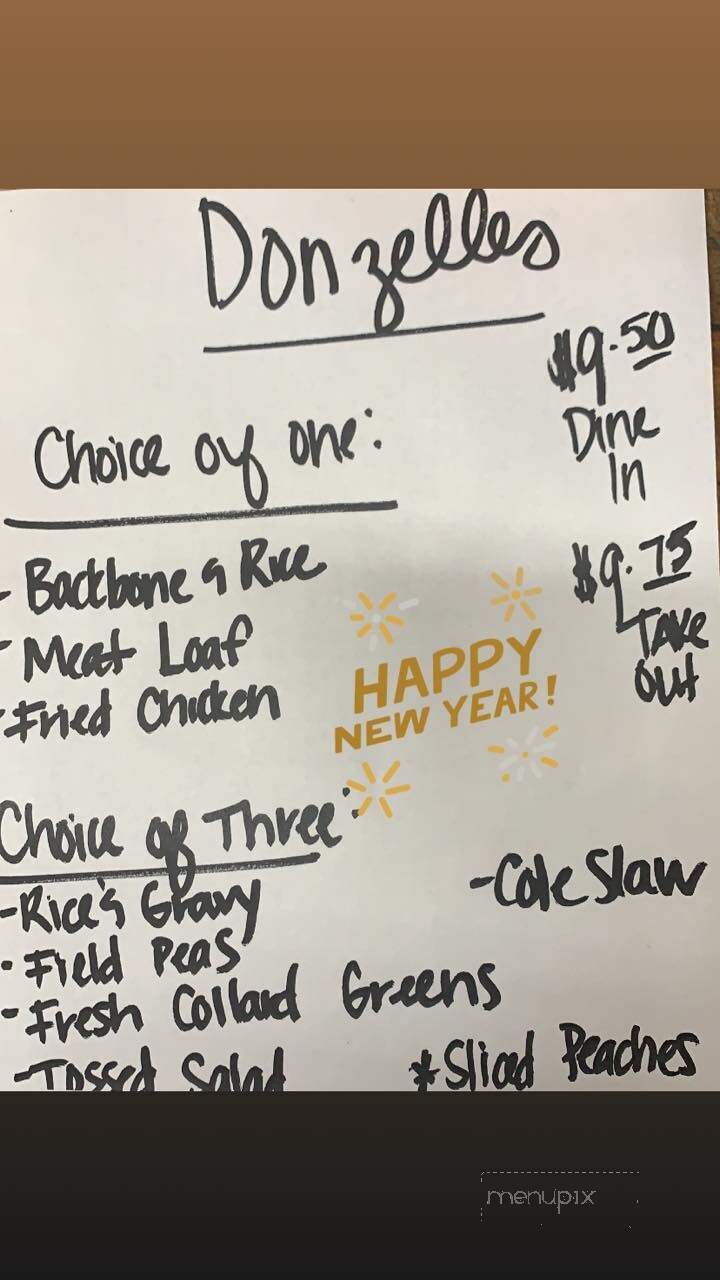 Donzelles
$9.50
Dine
In
Choice of one:
- Backbone & Rice
- Meat Loaf
- Fried Chicken
$9.75
Take
Out
HAPPY
NEW YEAR!
Choice of Three:
- Rice & Gravy
- Cole Slaw
- Field Peas
- Fresh Collard Greens
- Tossed Salad
* Sliced Peaches
menupix